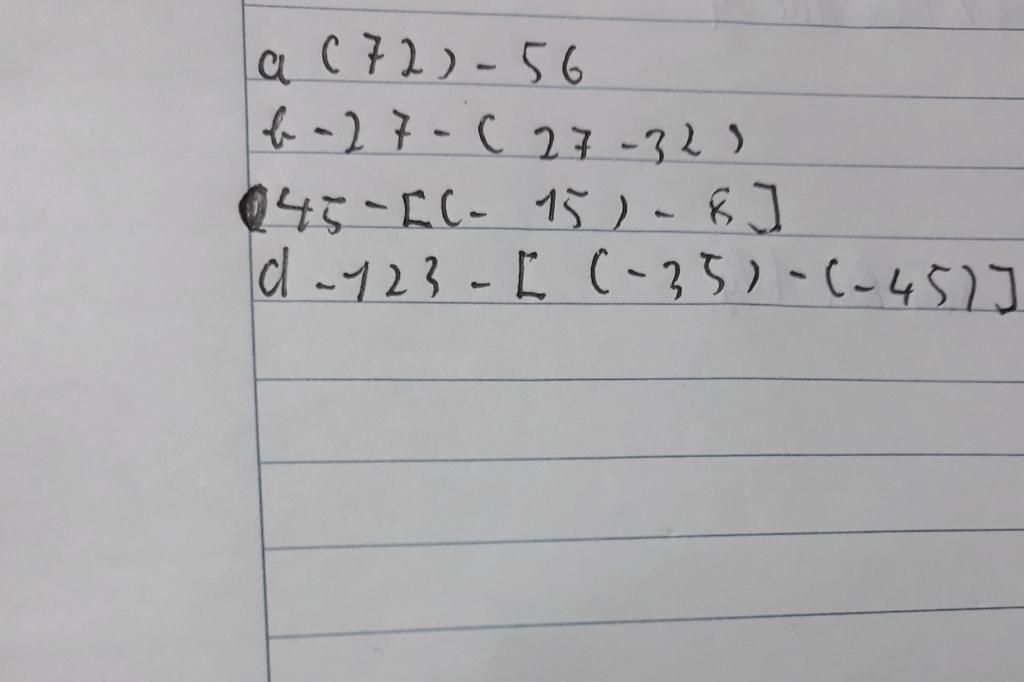 a (72) - 56
b - 27 - ( 27 - 32 )
45 - [(- 15 ) - 8 ]
d - 123 - [ (-35) - (-45)]